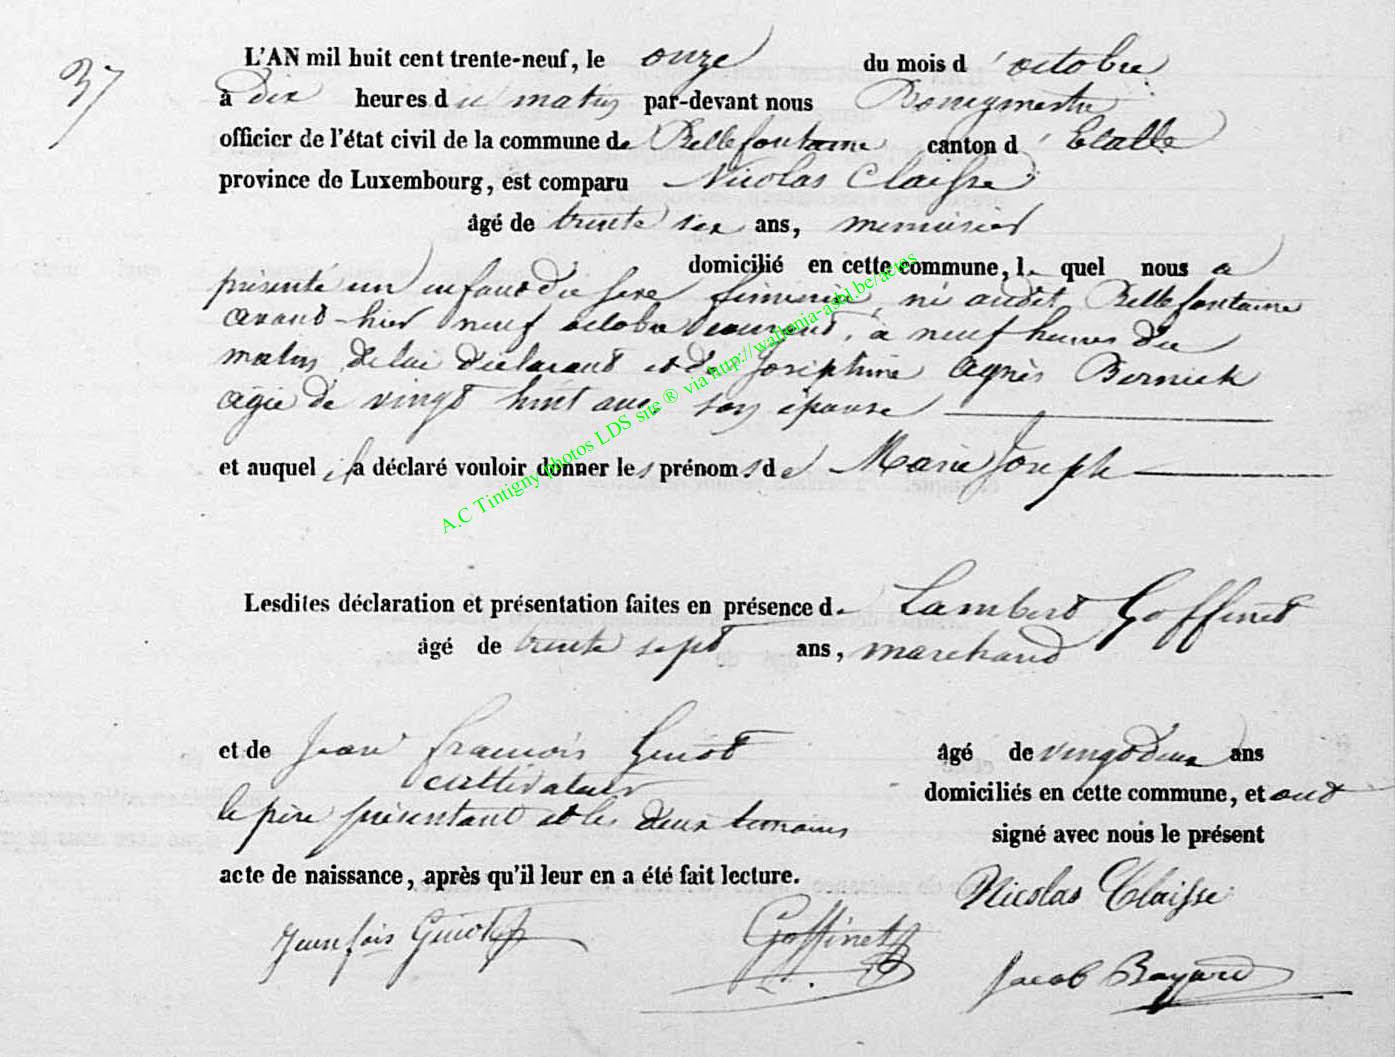 37
L'AN mil huit cent trente-neuf, le onze du mois d'octobre
à dix heures du matin par-devant nous Bourgmestre
officier de l'état civil de la commune de Bellefontaine canton d'Etalle
province de Luxembourg, est comparu Nicolas Claisse
âgé de trente six ans, menuisier
domicilié en cette commune, lequel nous a
présenté un enfant du sexe féminin, né audit Bellefontaine
avant-hier neuf octobre courant, à neuf heures du
matin, de lui déclarant et de Joséphine Agnès Bernick
agée de vingt huit ans son épouse
et auquel il a déclaré vouloir donner les prénoms de Marie Joseph
Lesdites déclaration et présentation faites en présence de Lambert Goffinet
âgé de trente sept ans, marchand
et de Jean françois Guiot âgé de vingt deux ans
cultivateur domiciliés en cette commune, et ont
le père présentant et les deux témoins signé avec nous le présent
acte de naissance, après qu'il leur en a été fait lecture.
Nicolas Claisse
Jean fois Guiot Goffinet
Jacob Bayard
A.C Tintigny photos LDS site ® via http://wallonia-asbl.be/actes